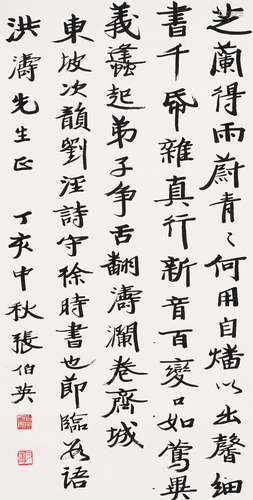 芝蘭得雨蔚青〻何用自燔以出馨細
書千帋雜真行新音百變口如鶯異
義蠭起弟子争舌翻濤瀾卷齊城
東坡次韻劉涇詩守徐時書也節臨數語
洪濤先生正 丁亥中秋張伯英